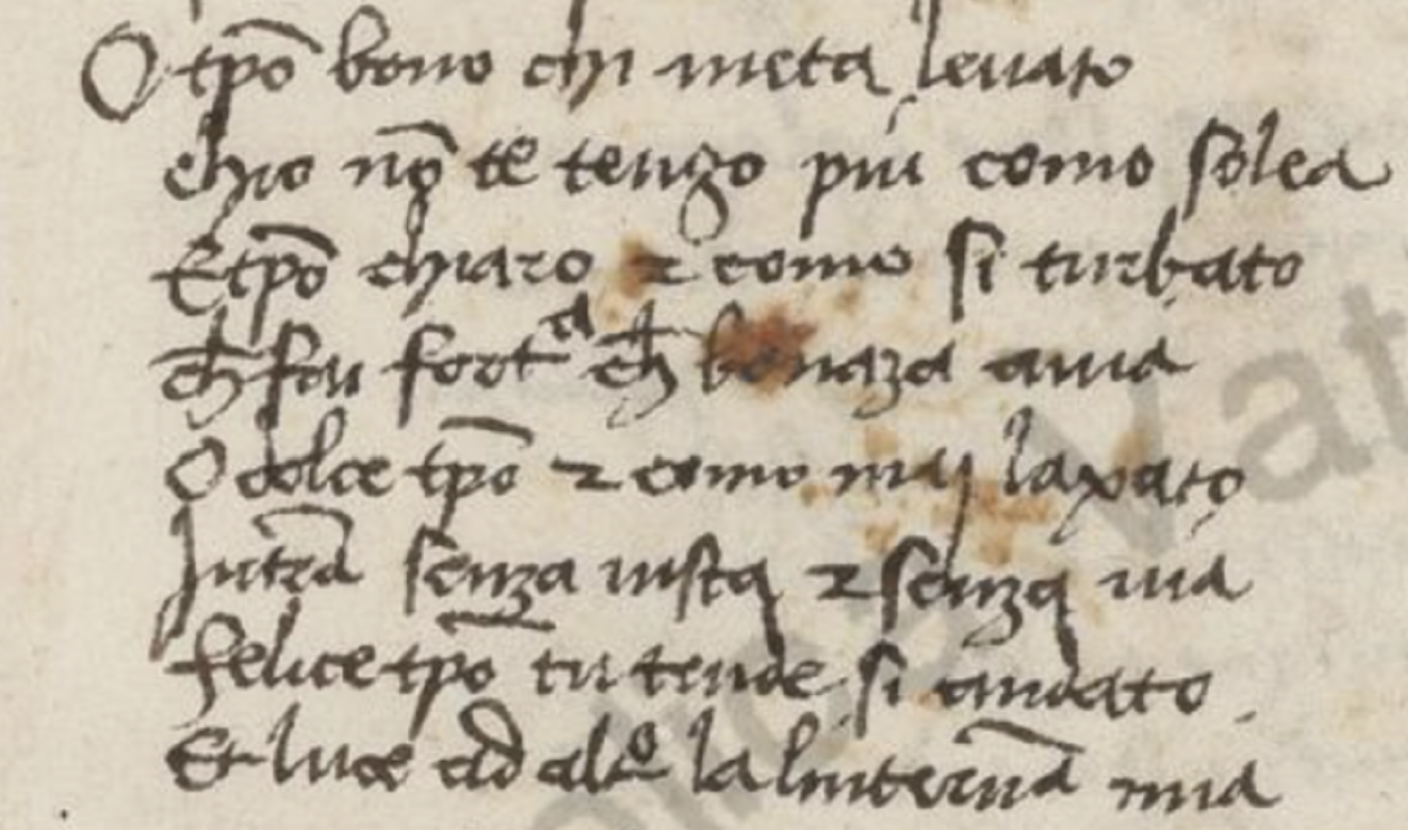 O tp̄o bono chi meta leuato
chio nō te tengo piu como solea
E tp̄o chiaro ⁊ como si turbato
ch̄ fai fortᵃ ch̄ bonaza auia
O dolce tp̄o ⁊ como maj laxato
Jntr̄a senza uista ⁊ senza uia
felice tp̄o tu tende si andato
Et luce ad alᵒ la lnterna mia